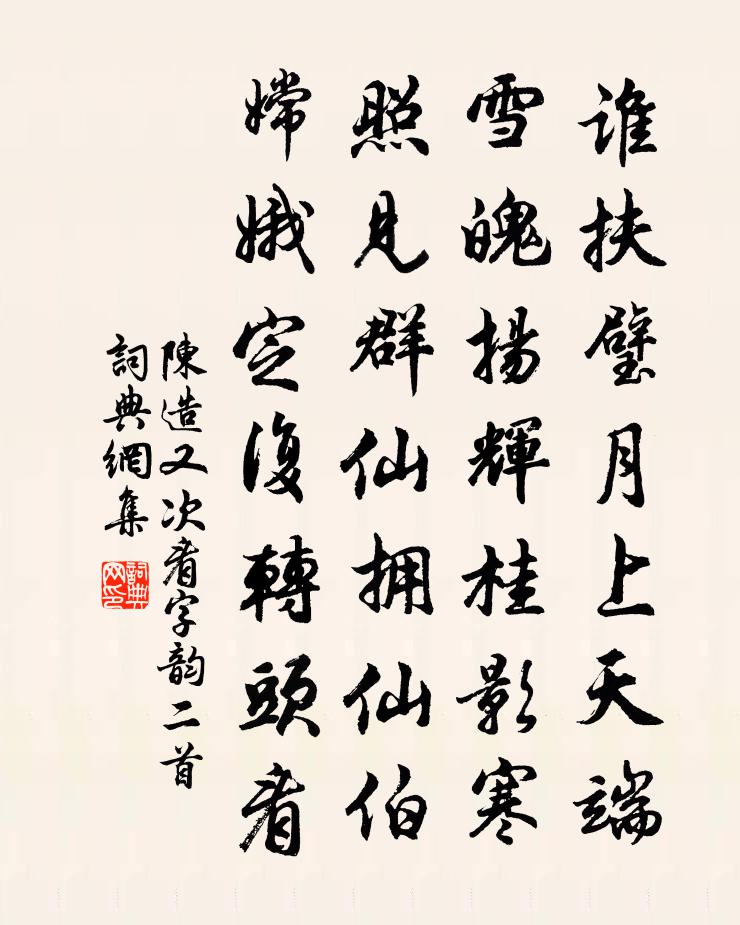 誰扶璧月上天端
雪魄揚輝桂影寒
照見群仙拥仙伯
嫦娥定復轉頭看
陳造又次看字韵二首
詞典網集
詞典网印